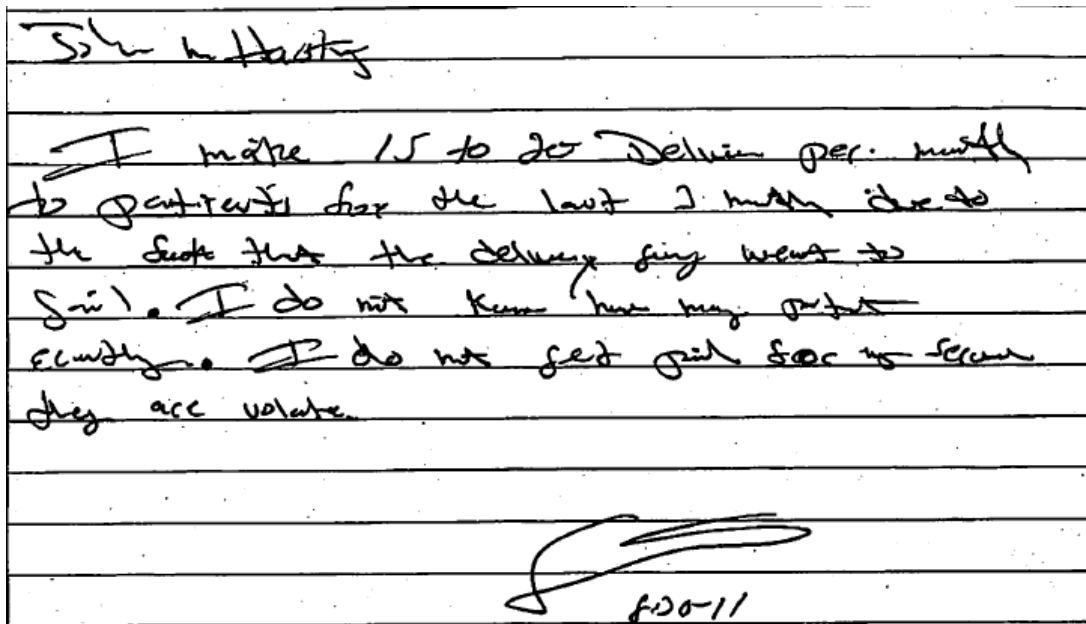 John m Hasty
I make 15 to 20 Deliveries per. month
to patients for the last 2 month due to
the fact that the delivery guy went to
jail. I do not know how many patient
exactly. I do not get paid for my
they are
8-20-11